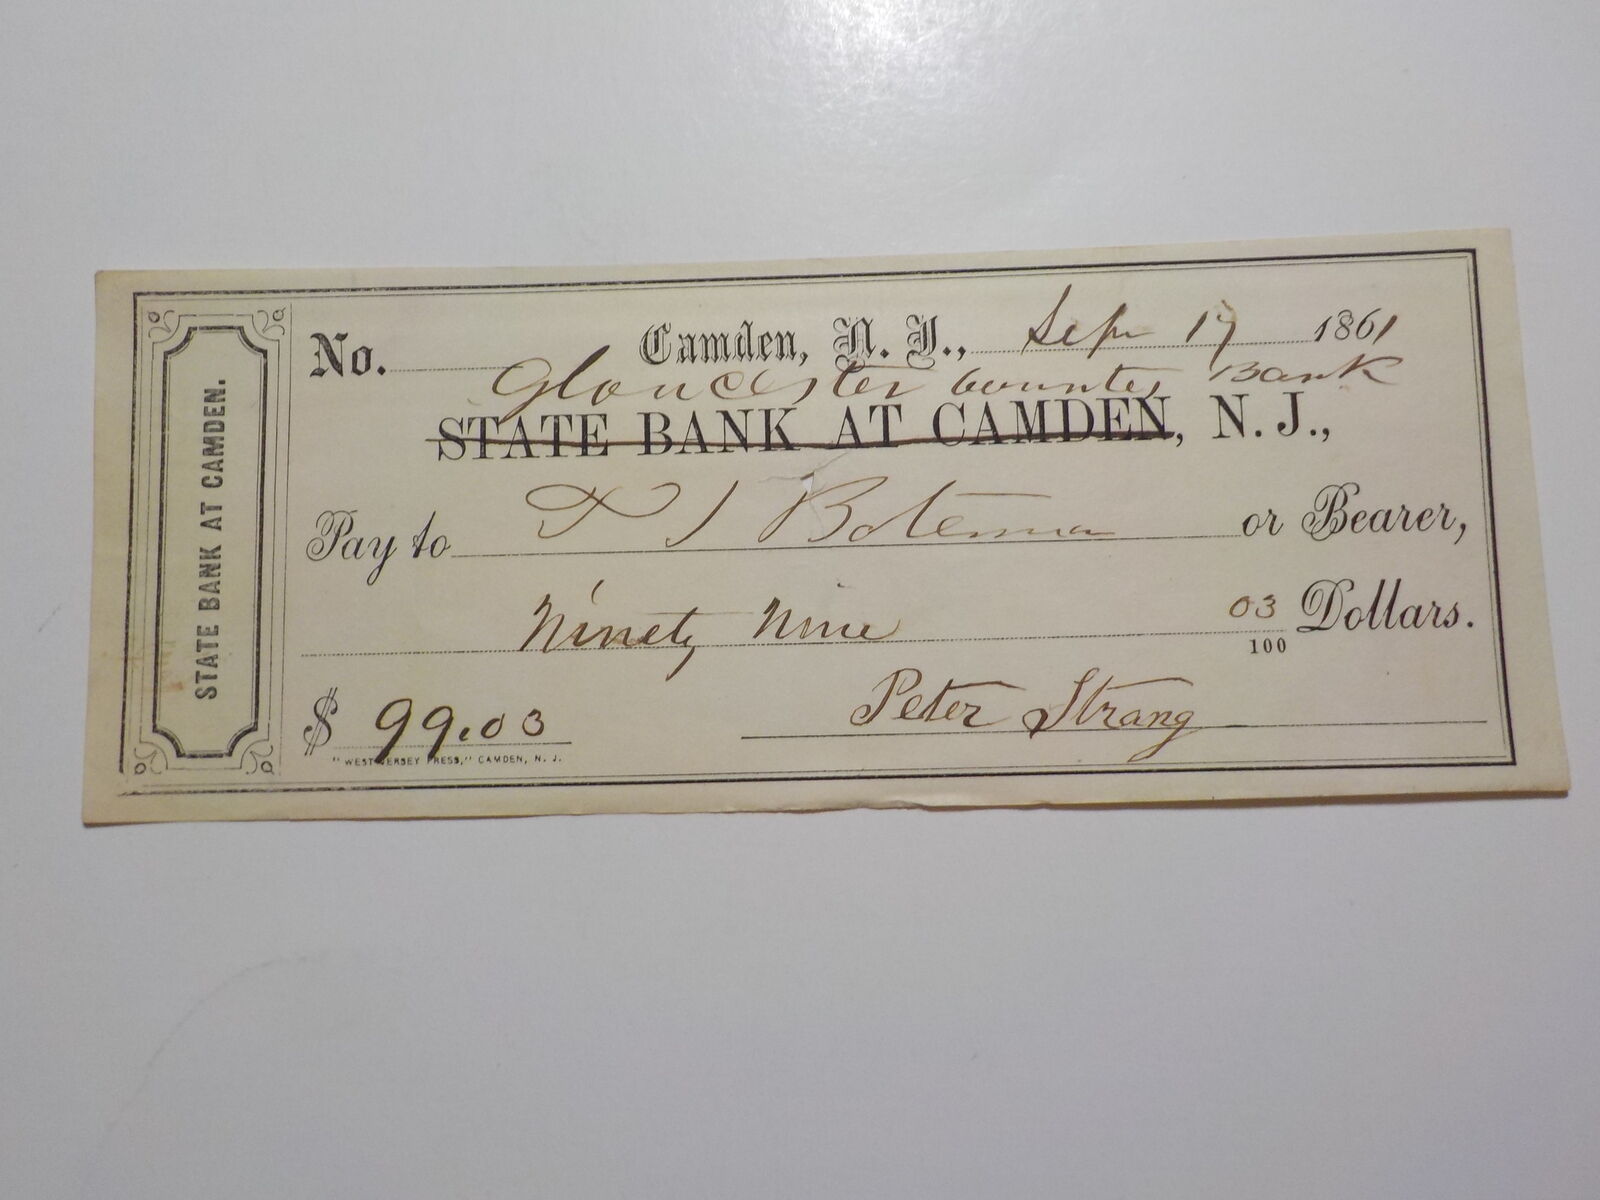 STATE BANK AT CAMDEN.
No. Camden, N. J., Sep 17 1861
Gloucester County Bank
STATE BANK AT CAMDEN, N. J.,
Pay to J Bateman or Bearer,
Ninety Nine 03/100 Dollars.
$ 99.03 Peter Strang
"WEST JERSEY PRESS," CAMDEN, N. J.